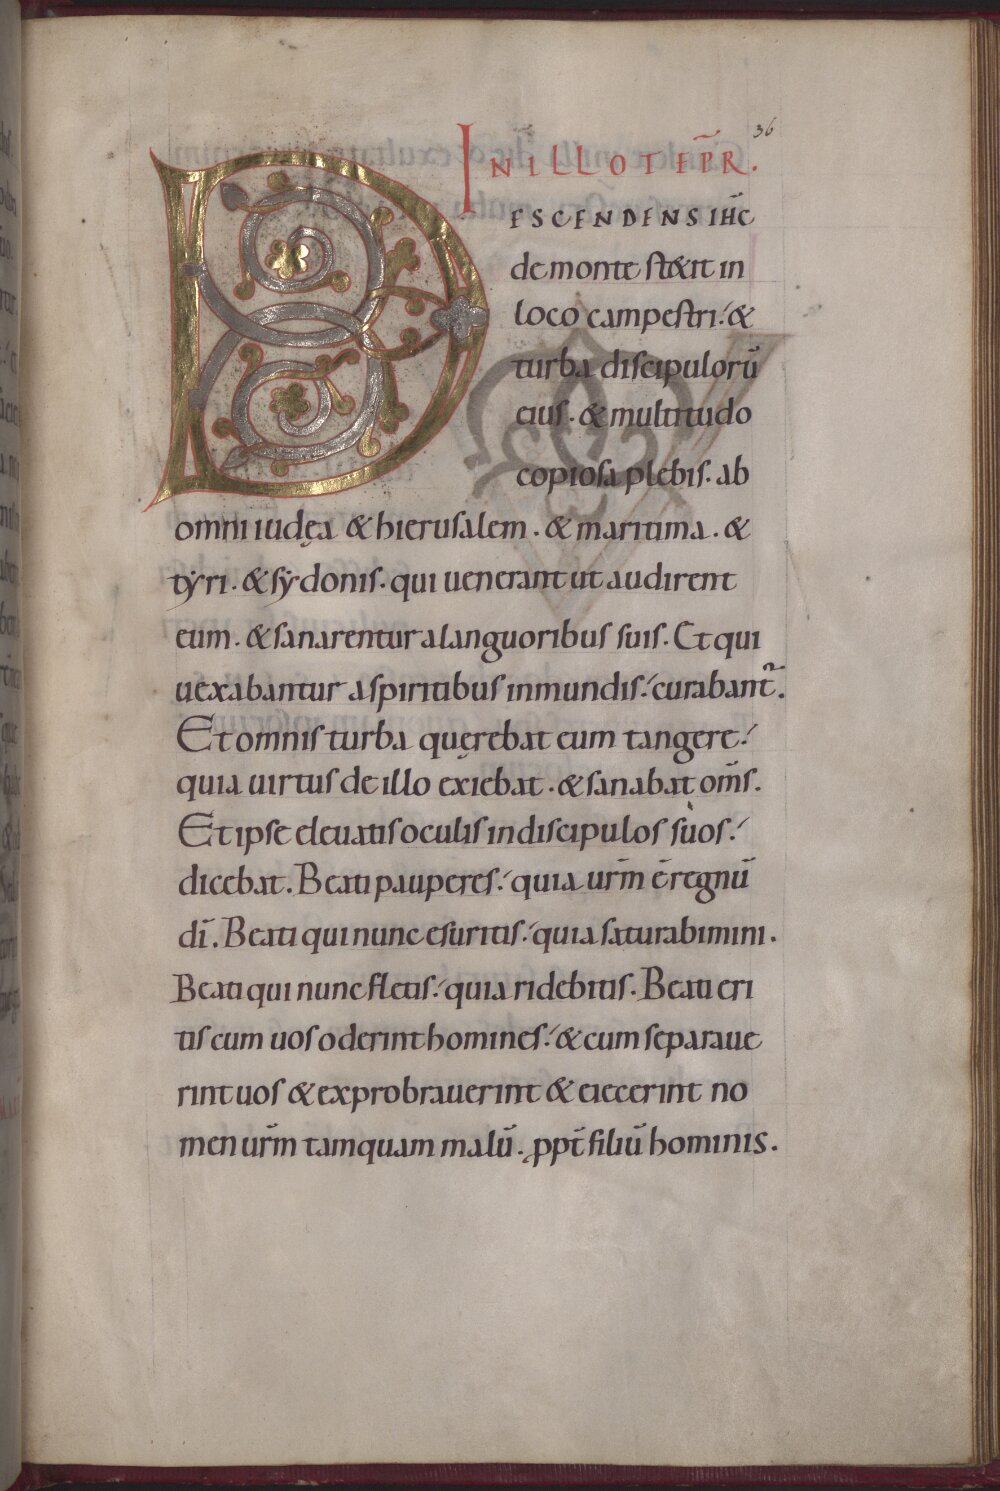 36
IN ILLO TEP̄R.
DESCENDENS IH̄C
de monte stetit in
loco campestri. &
turba discipulorū
eius. & multitudo
copiosa plebis. ab
omni iudęa & hierusalem. & maritima. &
tyri. & sydonis. qui uenerant ut audirent
eum. & sanarentur a languoribus suis. Et qui
uexabantur a spiritibus inmundis. curabant̃.
Et omnis turba quęrebat eum tangere.
quia uirtus de illo exiebat. & sanabat om̄s.
Et ipse eleuatis oculis in discipulos suos.
dicebat. Beati pauperes. quia ur̄m ē regnū
dī. Beati qui nunc esuritis. quia saturabimini.
Beati qui nunc fletis. quia ridebitis. Beati eri
tis cum uos oderint homines. & cum separaue
rint uos & exprobrauerint & eiecerint no
men ur̄m tamquam malū. ꝓpt̄ filiū hominis.